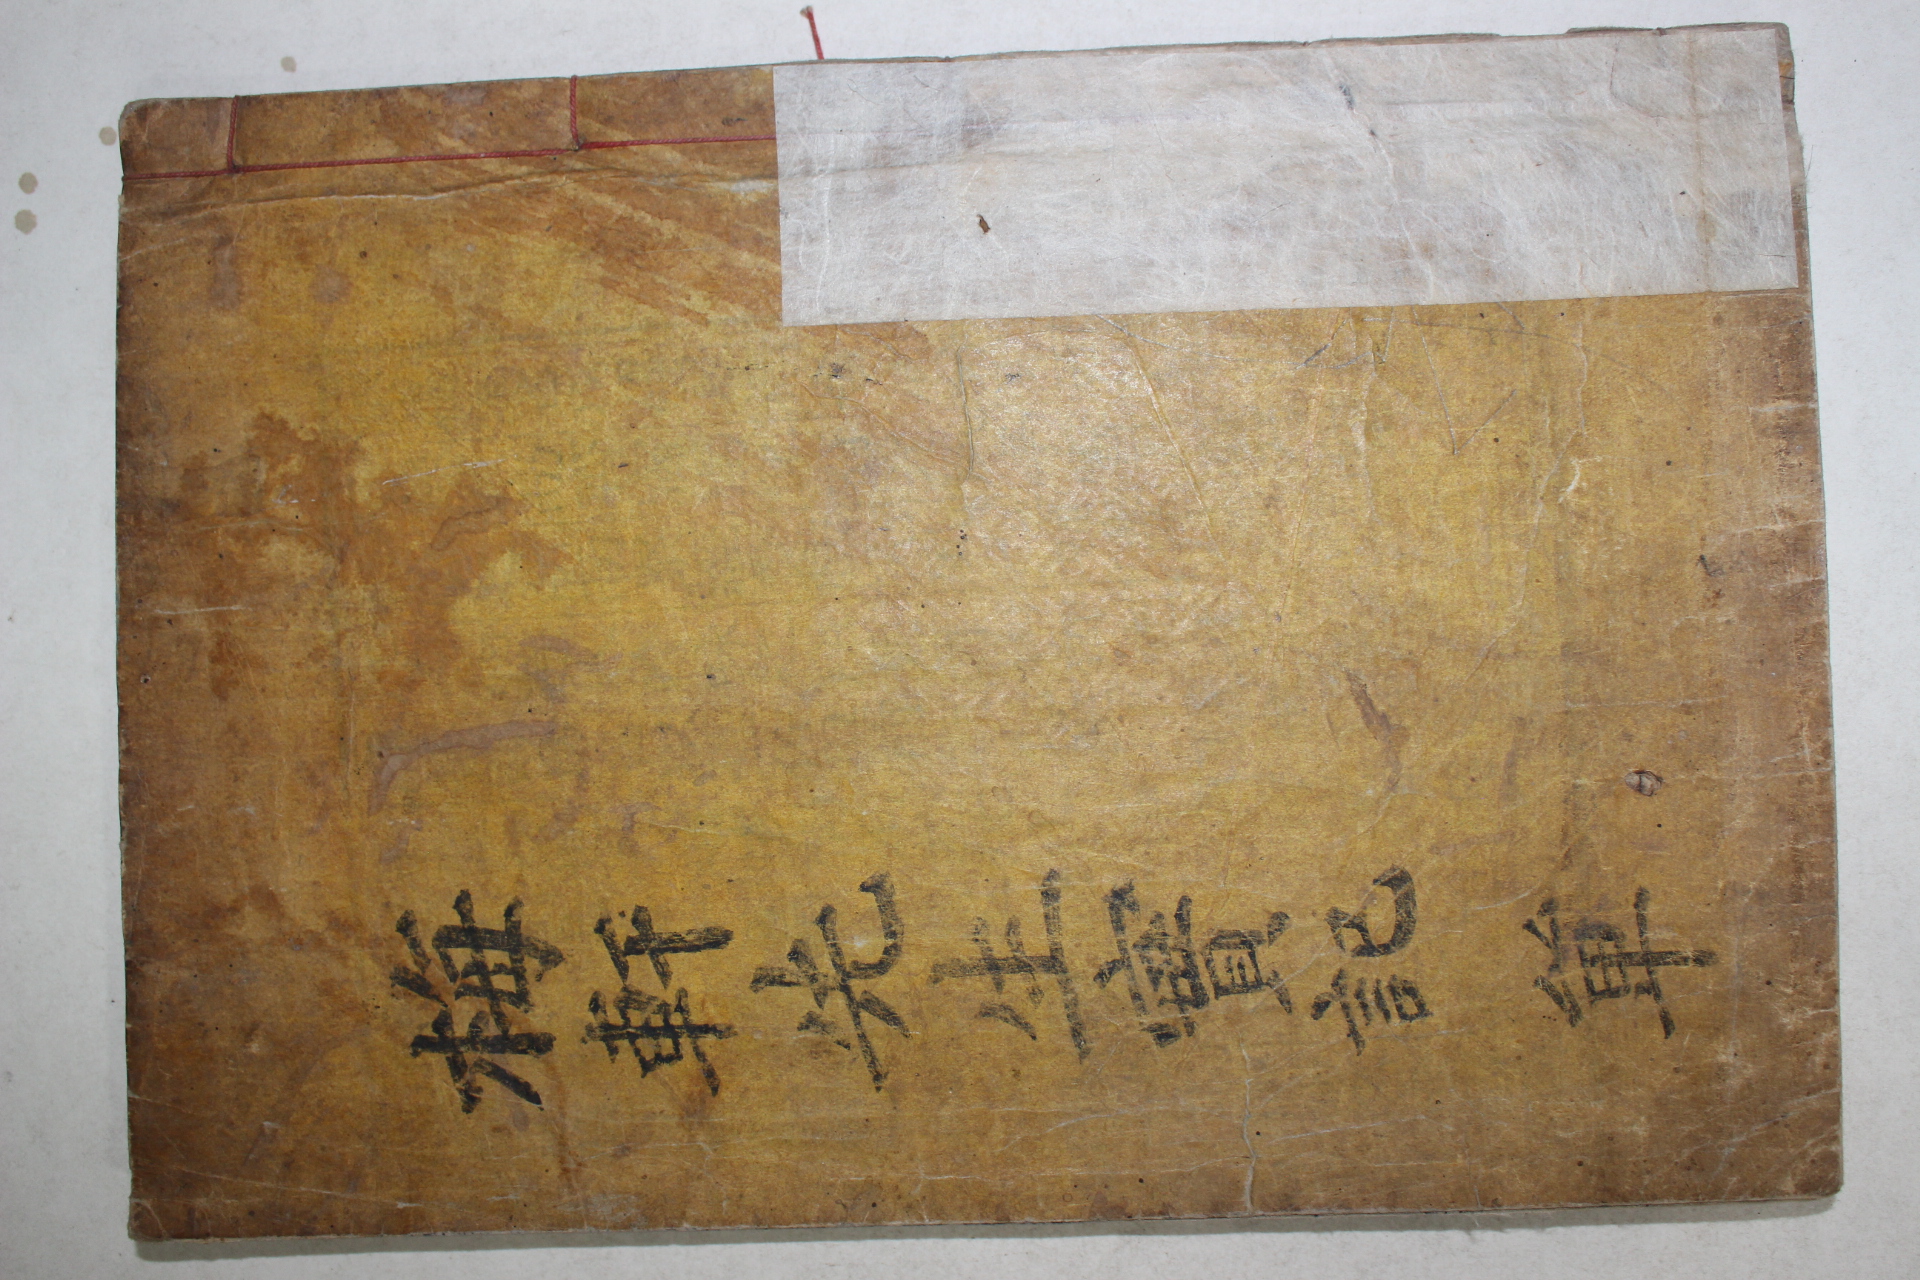 梅軒先生實記 單